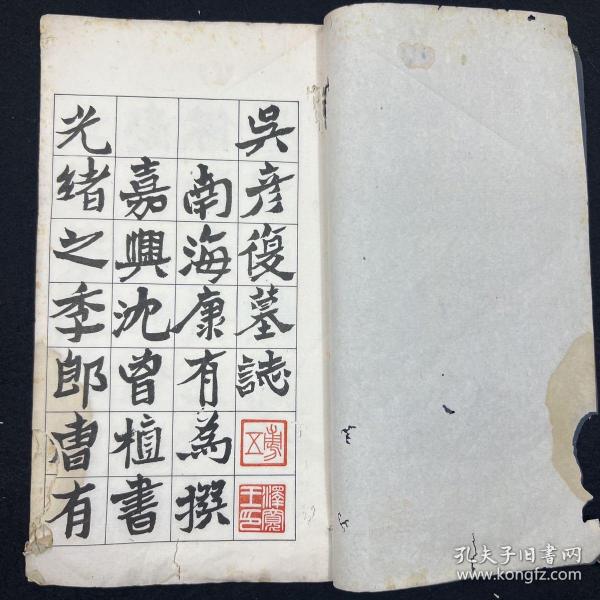 吳彦復墓誌
南海康有為撰
嘉興沈曾植書
光緒之季郎曹有
孔夫子旧书网
www.kongfz.com